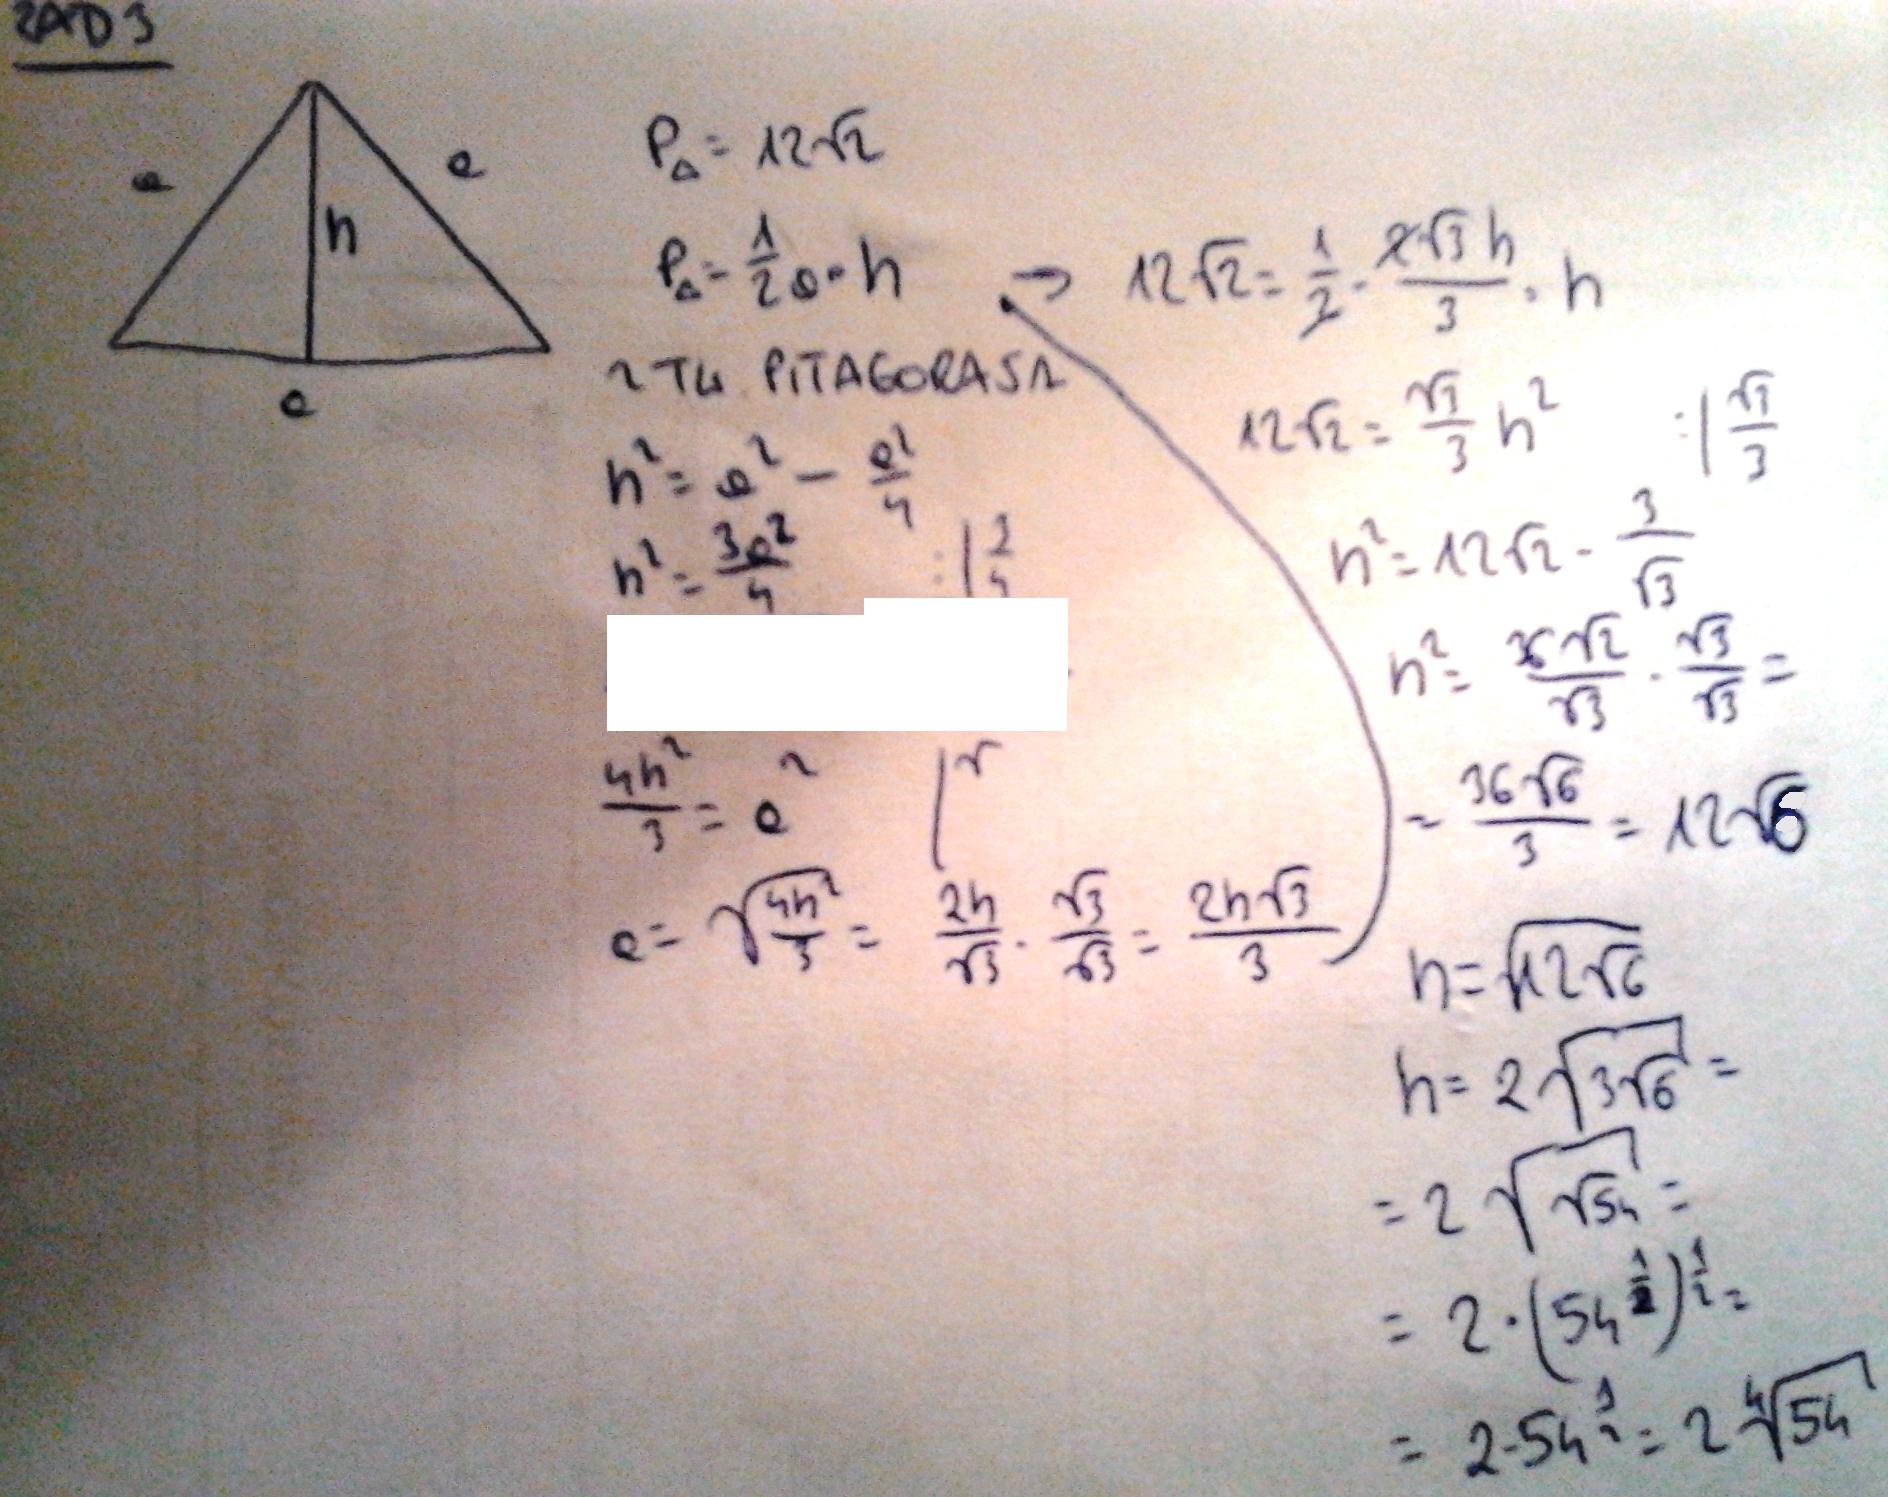 ZAD 3
a
a
h
a
P△ = 12√2
P△ = 1/2 a · h
Z TW. PITAGORASA
h² = a² - a²/4
h² = 3a²/4 :| 3/4
4h²/3 = a² |√
a = √(4h²/3) = 2h/√3 · √3/√3 = 2h√3/3
→ 12√2 = 1/2 · 2√3h/3 · h
12√2 = √3/3 h² :| √3/3
h² = 12√2 · 3/√3
h² = 36√2/√3 · √3/√3 =
= 36√6/3 = 12√6
h = √(12√6)
h = 2√(3√6) =
= 2√(√54) =
= 2·(54^(1/2))^(1/2) =
= 2·54^(1/2) = 2 ⁴√54